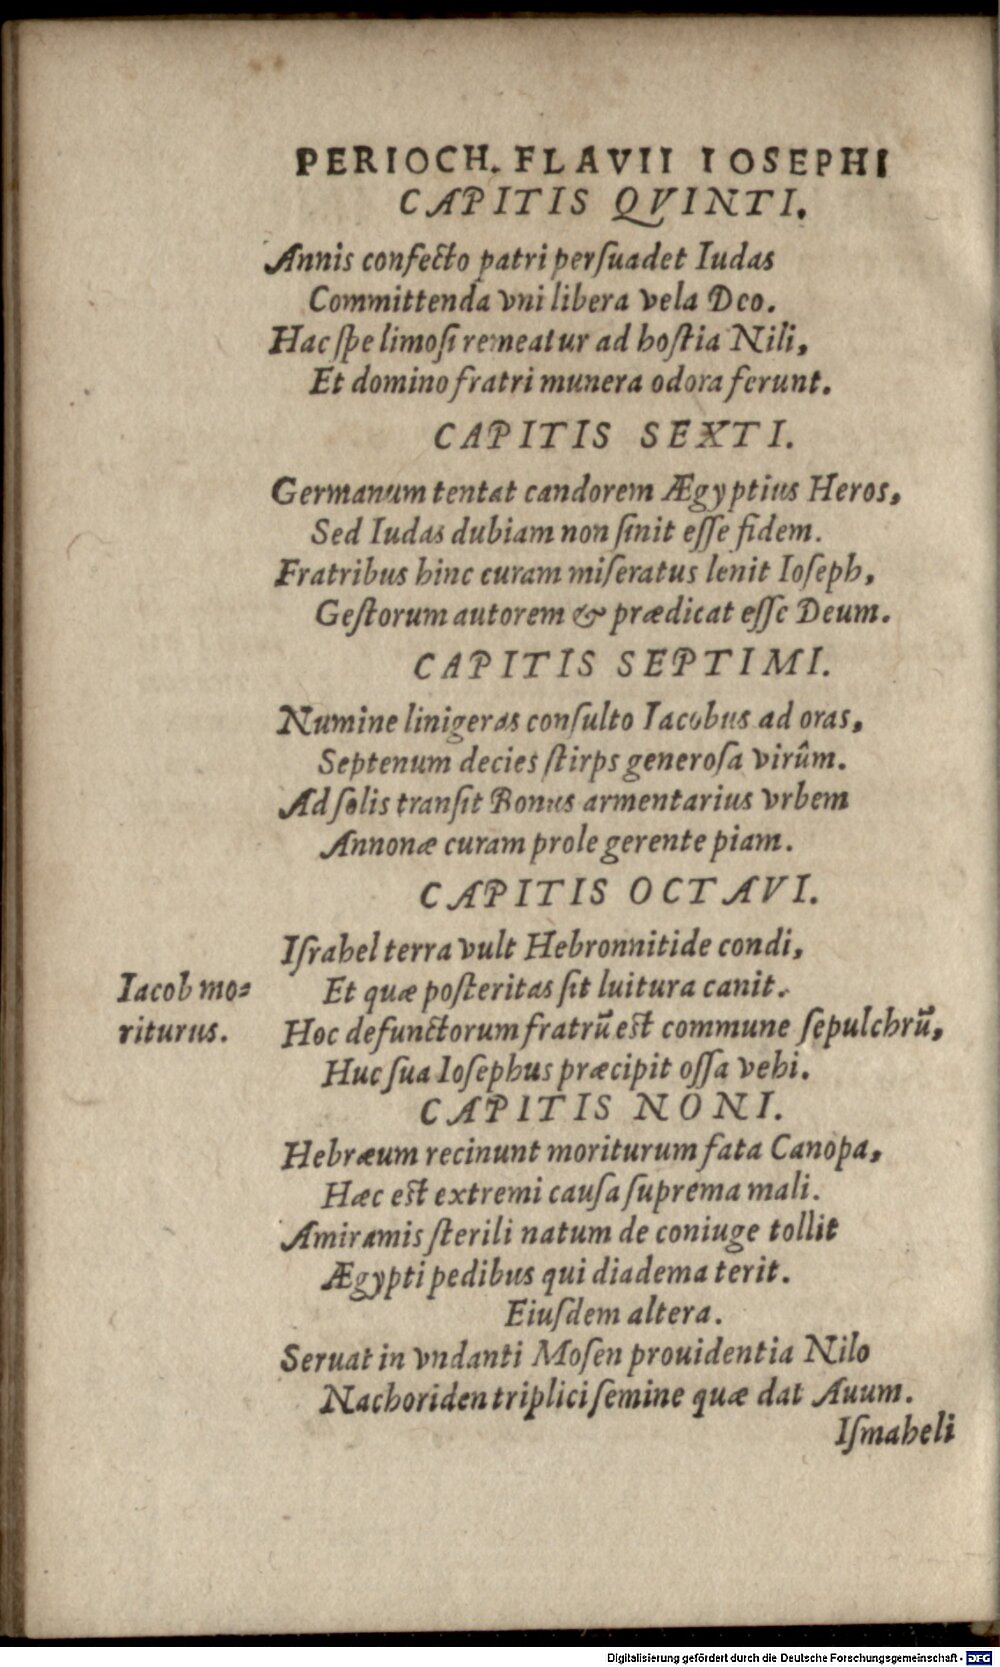 PERIOCH. FLAVII IOSEPHI
CAPITIS QVINTI.
Annis confecto patri persuadet Iudas
Committenda vni libera vela Deo.
Hac spe limosi remeatur ad hostia Nili,
Et domino fratri munera odora ferunt.
CAPITIS SEXTI.
Germanum tentat candorem Ægyptius Heros,
Sed Iudas dubiam non sinit esse fidem.
Fratribus hinc curam miseratus lenit Ioseph,
Gestorum autorem & prædicat esse Deum.
CAPITIS SEPTIMI.
Numine linigeras consulto Iacobus ad oras,
Septenum decies stirps generosa virûm.
Ad solis transit Bonus armentarius vrbem
Annonæ curam prole gerente piam.
CAPITIS OCTAVI.
Israhel terra vult Hebronnitide condi,
Iacob mo=
riturus.
Et quæ posteritas sit luitura canit.
Hoc defunctorum fratrū est commune sepulchrū,
Huc sua Iosephus præcipit ossa vehi.
CAPITIS NONI.
Hebræum recinunt moriturum fata Canopa,
Hæc est extremi causa suprema mali.
Amiramis sterili natum de coniuge tollit
Ægypti pedibus qui diadema terit.
Eiusdem altera.
Seruat in vndanti Mosen prouidentia Nilo
Nachoriden triplici semine quæ dat Auum.
Ismaheli
Digitalisierung gefördert durch die Deutsche Forschungsgemeinschaft - DFG